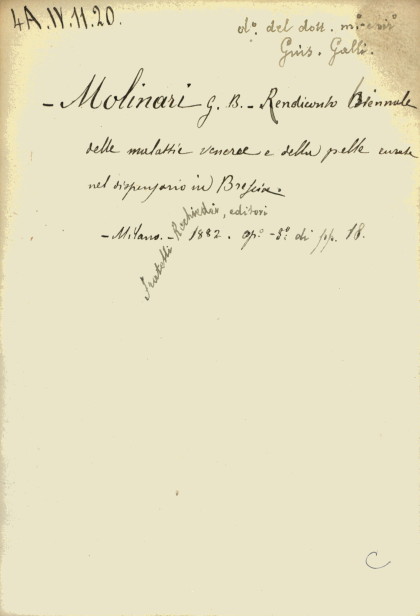 4A.IV.11.20.
d.º del dott. m.º
Gius. Galli.
- Molinari G. B. - Rendiconto Biennale
delle malattie veneree e della pelle curate
nel dispensario in Brescia.
Fratelli Rechiedei, editori
- Milano. - 1882. op.º -8.º di pp. 18.
C